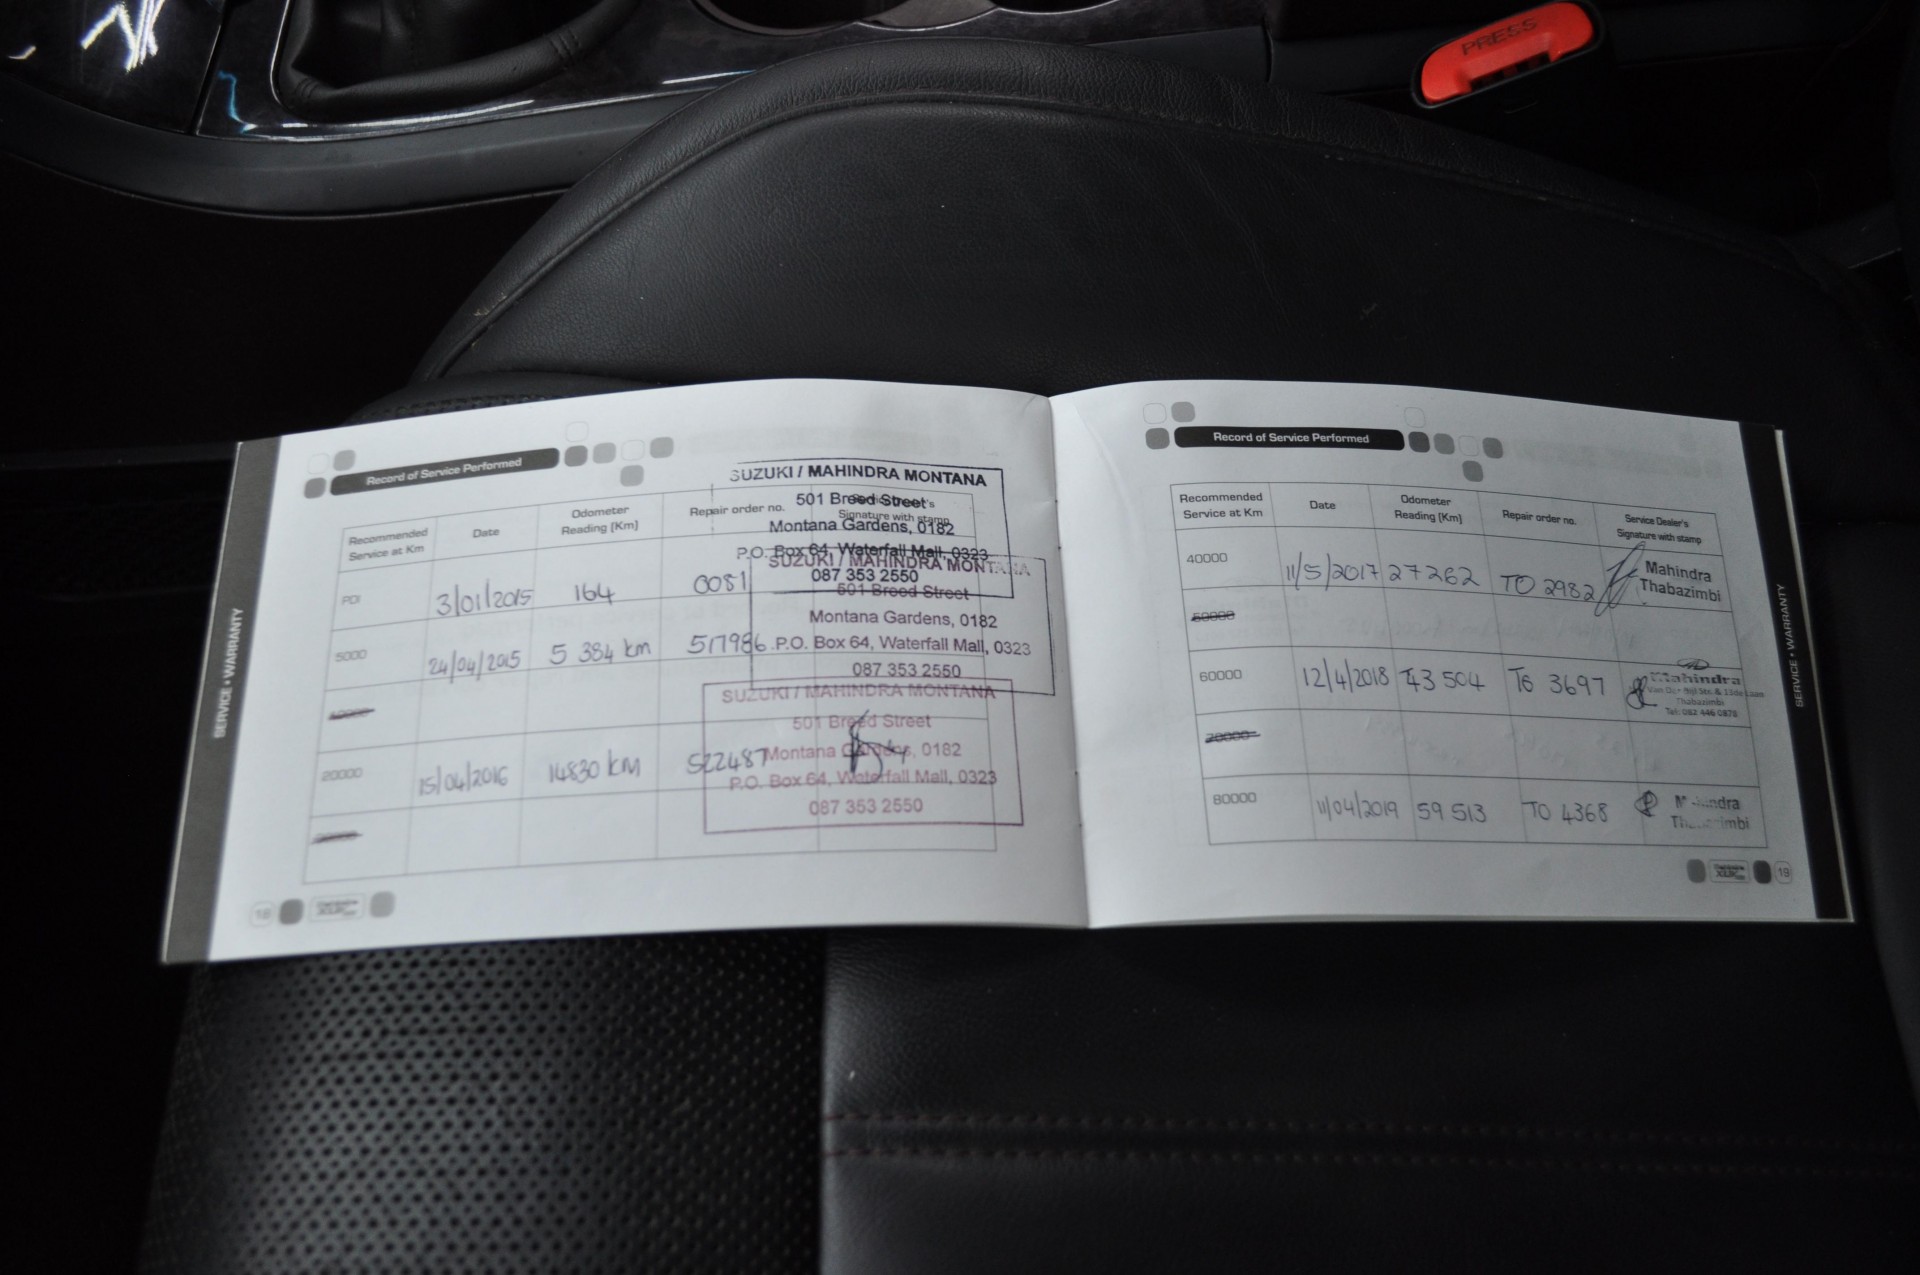 PRESS
Record of Service Performed
Recommended Service at Km Date Odometer Reading (Km) Repair order no. Signature with stamp
PDI 3/01/2015 164 0081
5000 24/04/2015 5 384 km 517986
20000 15/04/2016 14830 km 522487
SUZUKI / MAHINDRA MONTANA
501 Breed Street
Montana Gardens, 0182
P.O. Box 64, Waterfall Mall, 0323
087 353 2550
SUZUKI / MAHINDRA MONTANA
501 Breed Street
Montana Gardens, 0182
P.O. Box 64, Waterfall Mall, 0323
087 353 2550
SUZUKI / MAHINDRA MONTANA
501 Breed Street
Montana Gardens, 0182
P.O. Box 64, Waterfall Mall, 0323
087 353 2550
SERVICE • WARRANTY
18
Record of Service Performed
Recommended Service at Km Date Odometer Reading (Km) Repair order no. Service Dealer's Signature with stamp
40000 11/5/2017 27262 TO 2982 Mahindra Thabazimbi
60000 12/4/2018 43 504 TO 3697 Mahindra
Thabazimbi
Tel: 082 446 0878
80000 11/04/2019 59 513 TO 4368
SERVICE • WARRANTY
19